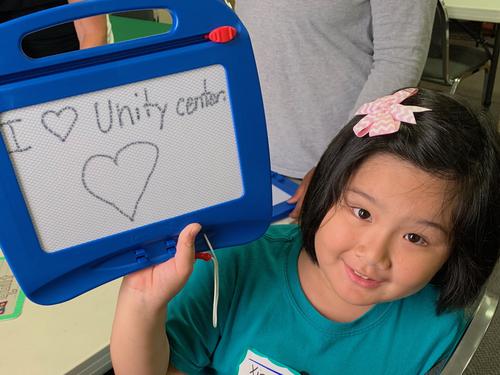 I ♡ Unity center.